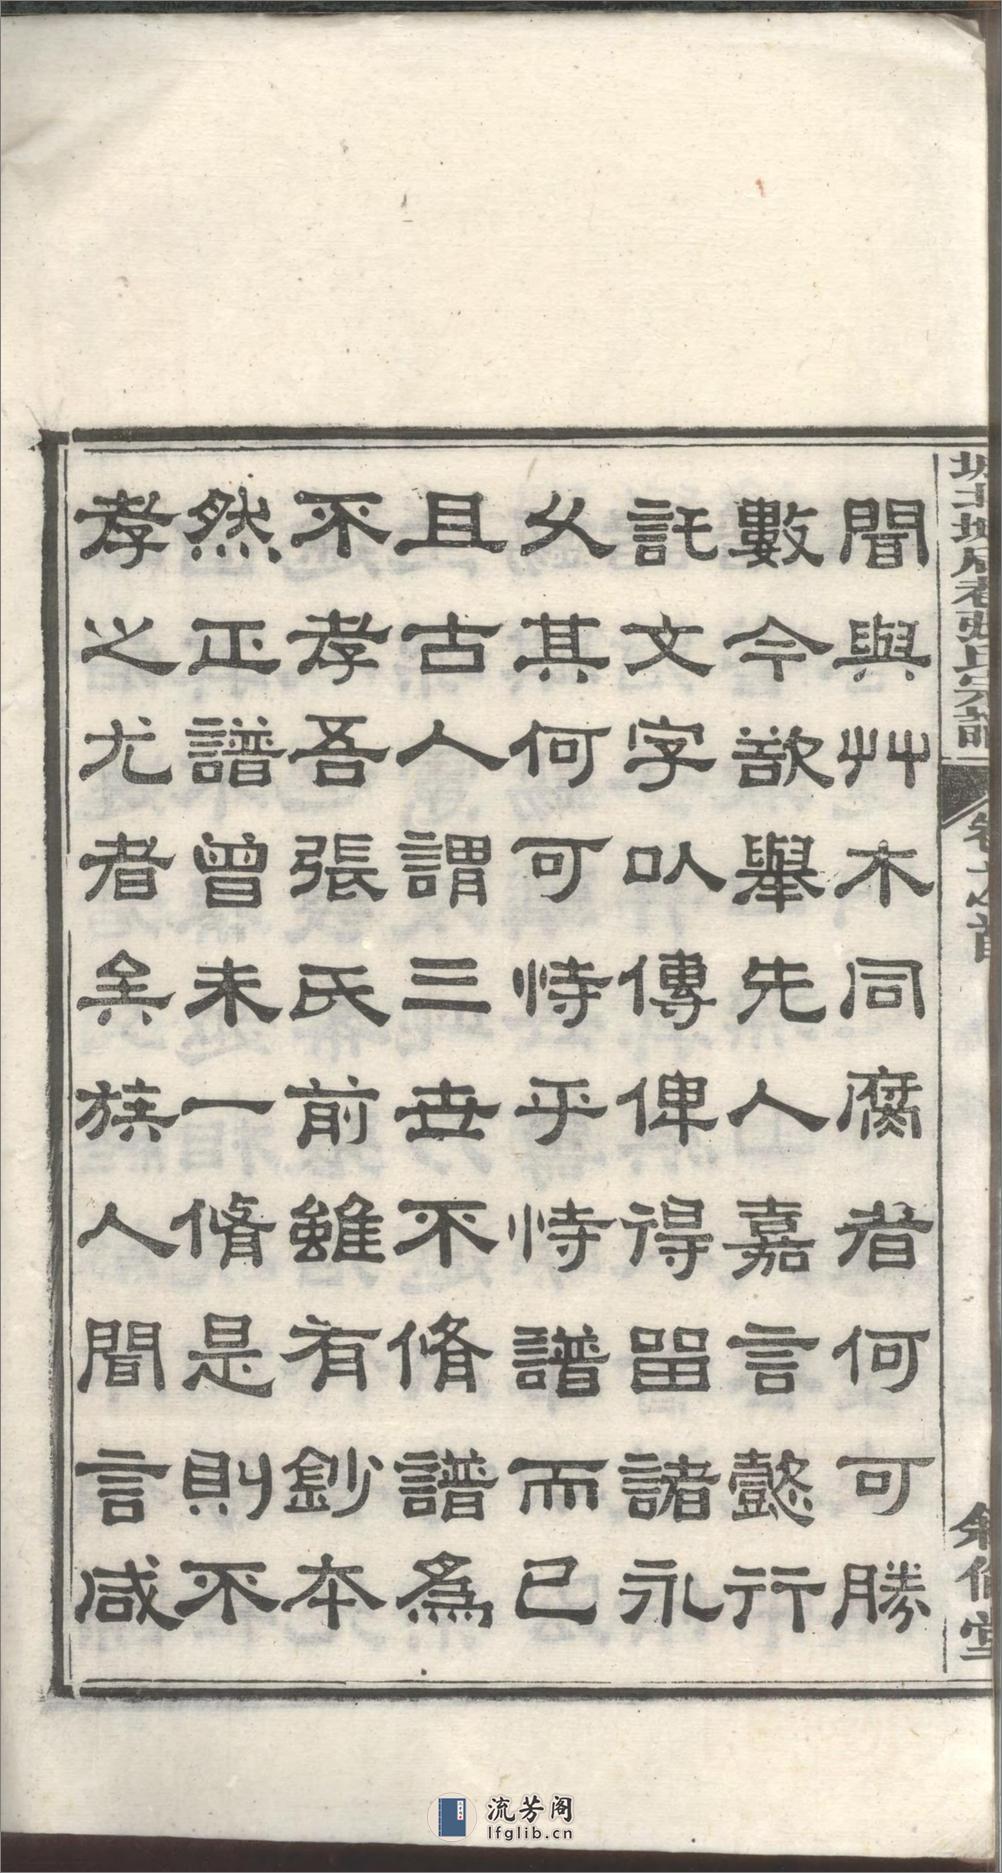 聞與艸木同腐者何可勝
數今欲舉先人嘉言懿行
託文字以傳俾得留諸永
久其何可恃乎恃譜而已
且古人謂三世不脩譜為
不孝吾張氏前雖有鈔本
然正譜曾未一脩是則不
孝之尤者矣族人間言咸
流芳阁
lfglib.cn